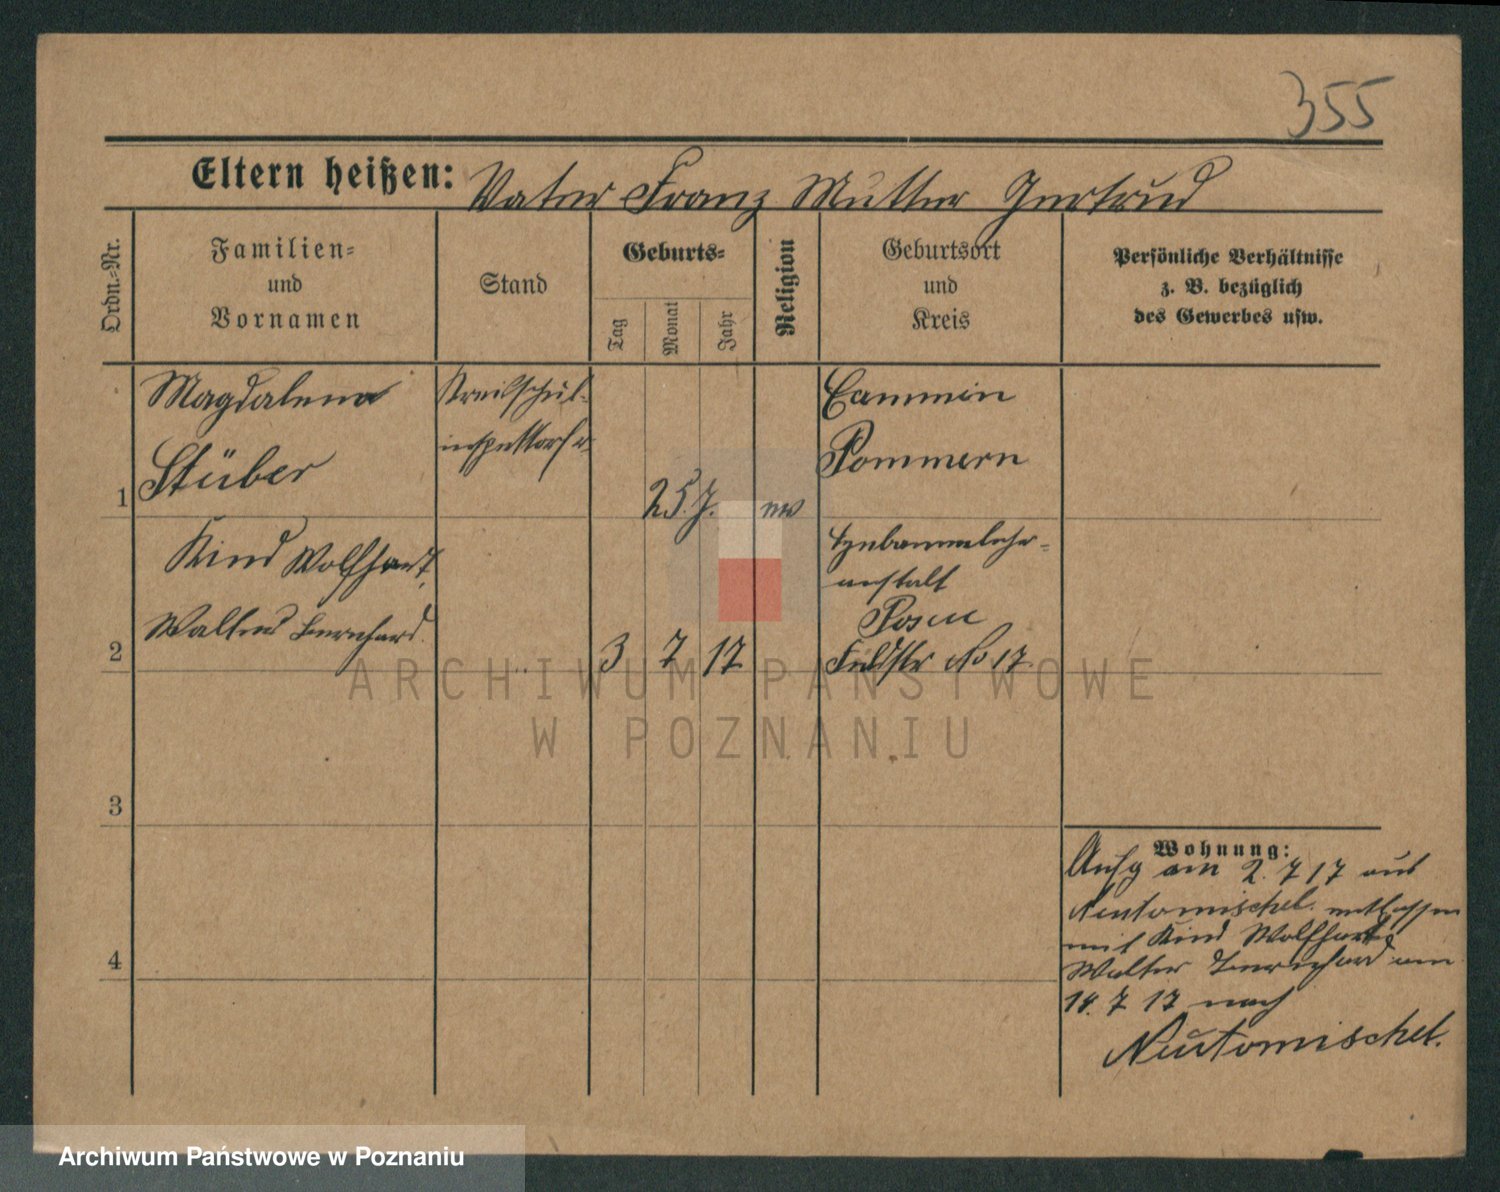 355
Eltern heißen: Vater Franz Mutter Gertrud
Ordn.-Nr.
Familien-
und
Vornamen
Stand
Geburts-
Tag
Monat
Jahr
Religion
Geburtsort
und
Kreis
Persönliche Verhältnisse
z. B. bezüglich
des Gewerbes usw.
Magdalena
Stüber
1
Kreisschul-
inspektorfr.
25 J.
ev
Cammin
Pommern
Kind Wolfhart
Walter Bernhard.
2
3 7 17
Hebammenlehr-
anstalt
Posen
Feldstr No 17.
3
4
Wohnung:
Aufg am 2. 7 17 aus
Neutomischel. entlassen
mit Kind Wolfhart
Walter Bernhard am
14. 7 17 nach
Neutomischel.
ARCHIWUM PAŃSTWOWE
W POZNANIU
Archiwum Państwowe w Poznaniu